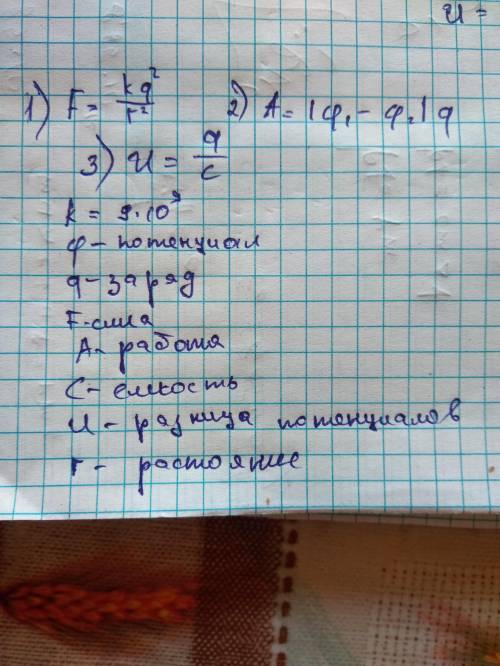 U =
1) F = kq²/r² 2) A = |φ₁ - φ₂| q
3) U = q/c
k = 9·10⁹
φ – потенциал
q – заряд
F – сила
A – работа
C – ёмкость
U – разница потенциалов
r – растояние